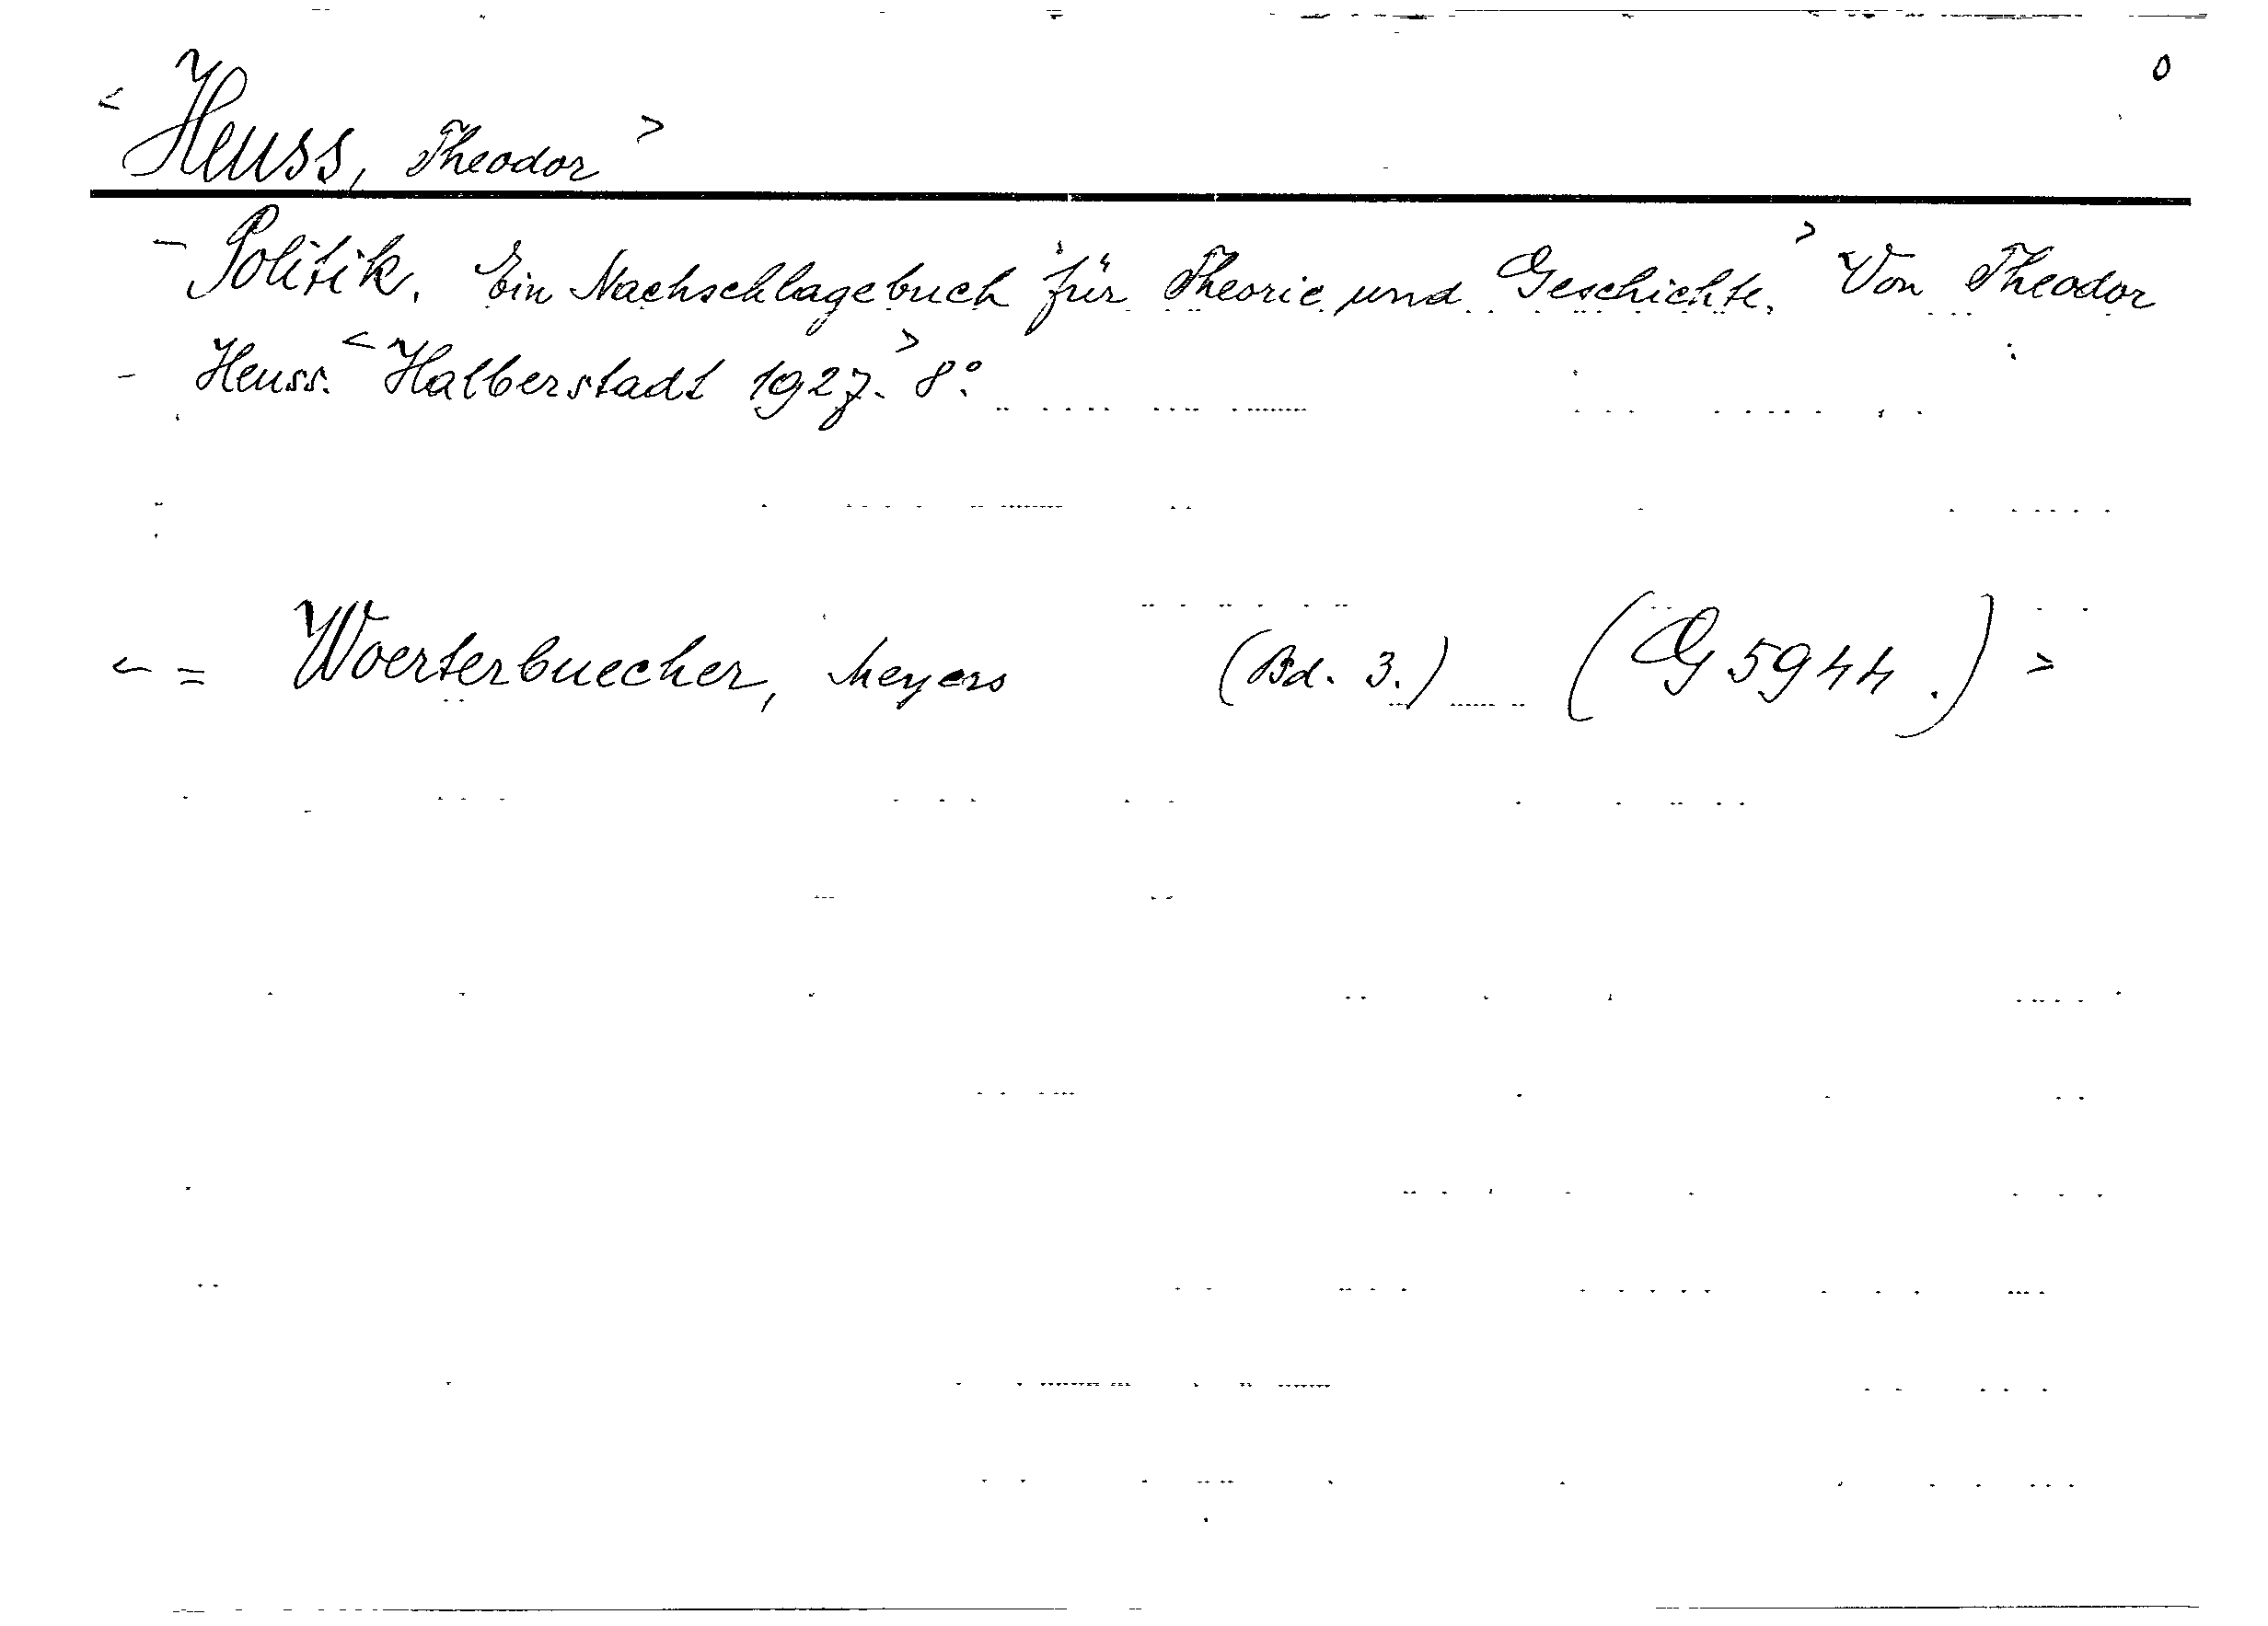 0
< Heuss, Theodor >
- Politik. Ein Nachschlagebuch für Theorie und Geschichte. > Von Theodor
- Heuss. < Halberstadt 1927. > 8°.
< = Woerterbuecher, Meyers (Bd. 3.) (G 5944.) >